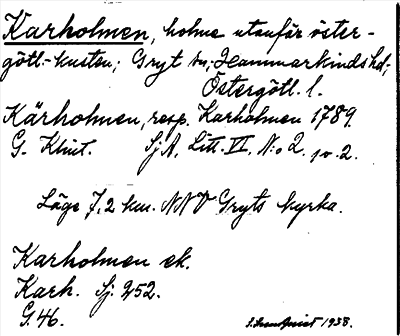 Karholmen, holme utanför öster-
götl.-kusten; Gryt sn; Hammarkinds hd;
Östergötl. l.
Kärholmen, resp. Karholmen 1789.
G. Klint. Sj A. Litt. VI. N:o 2. pv. 2.
Läge 7,2 km. NNV Gryts kyrka.
Karholmen ek.
Karh. Sj 252.
G. 46.
1938.